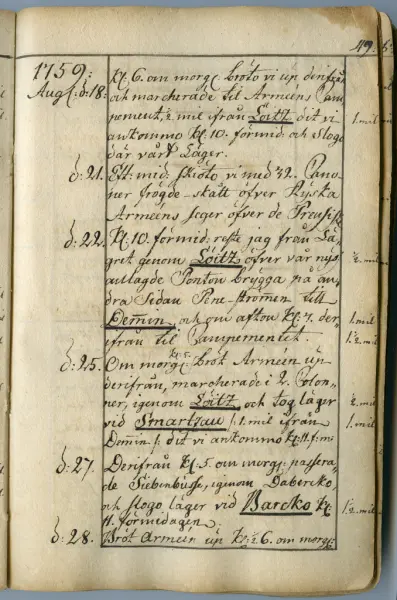 49.
1759.
Aug: d: 18. Kl: 6. om morg: bröto vi up derifrån
och marcherade til Arméens Cam-
pement, ½ mil ifrån Loitz dit vi 1. mil
ankommo kl: 10. förmid: och slogo
där vårt Läger.
d: 21. Eft: mid: skiöto vi med 42. Cano-
ner frögde-skått öfver Ryska
Arméens seger öfver de Preussiske
d: 22. Kl: 10. förmid: reste jag från Lä-
gret genom Loitz öfver vår nys ½. mil
anlagde Ponton brygga på an-
dra Sidan Pene-strömen till
Demin, och om afton kl: 7. der- 1. mil
ifrån til Campementet. 1½. mil
d: 25. Om morg: kl: 5. bröt Arméen up
derifrån, marcherade i 2. Colon-
ner, igenom Loitz och tog läger ½. mil
vid Smartzau /: 1. mil ifrån 1. mil
Demin :/ dit vi ankommo kl: 11. f: m:
d: 27. Derifrån kl: 5. om morg: passera-
de Siebenbusse, igenom Daberckow
och slogo läger vid Barcko kl: 1½. mil
11. förmidagen.
d: 28. Bröt Arméen up kl: 6. om morg: